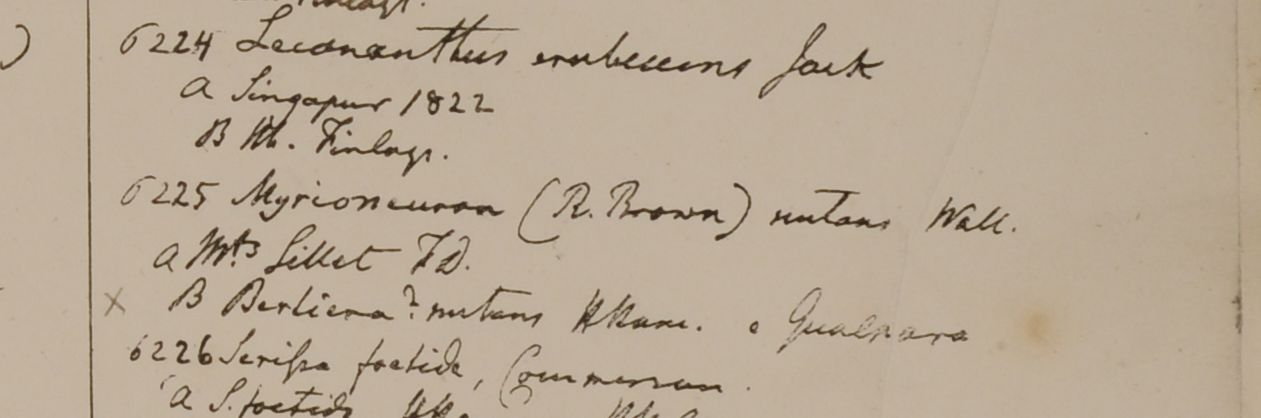 6224 Lecananthus erubescens Jack
A Singapur 1822
B Hb. Finlays.
6225 Myrioneuron (R. Brown) nutans Wall.
A Mts Sillet F.D.
x B Bertiera? nutans HHam. e Gualpara
6226 Serissa foetida, Commerson.
A S. foetida HHa